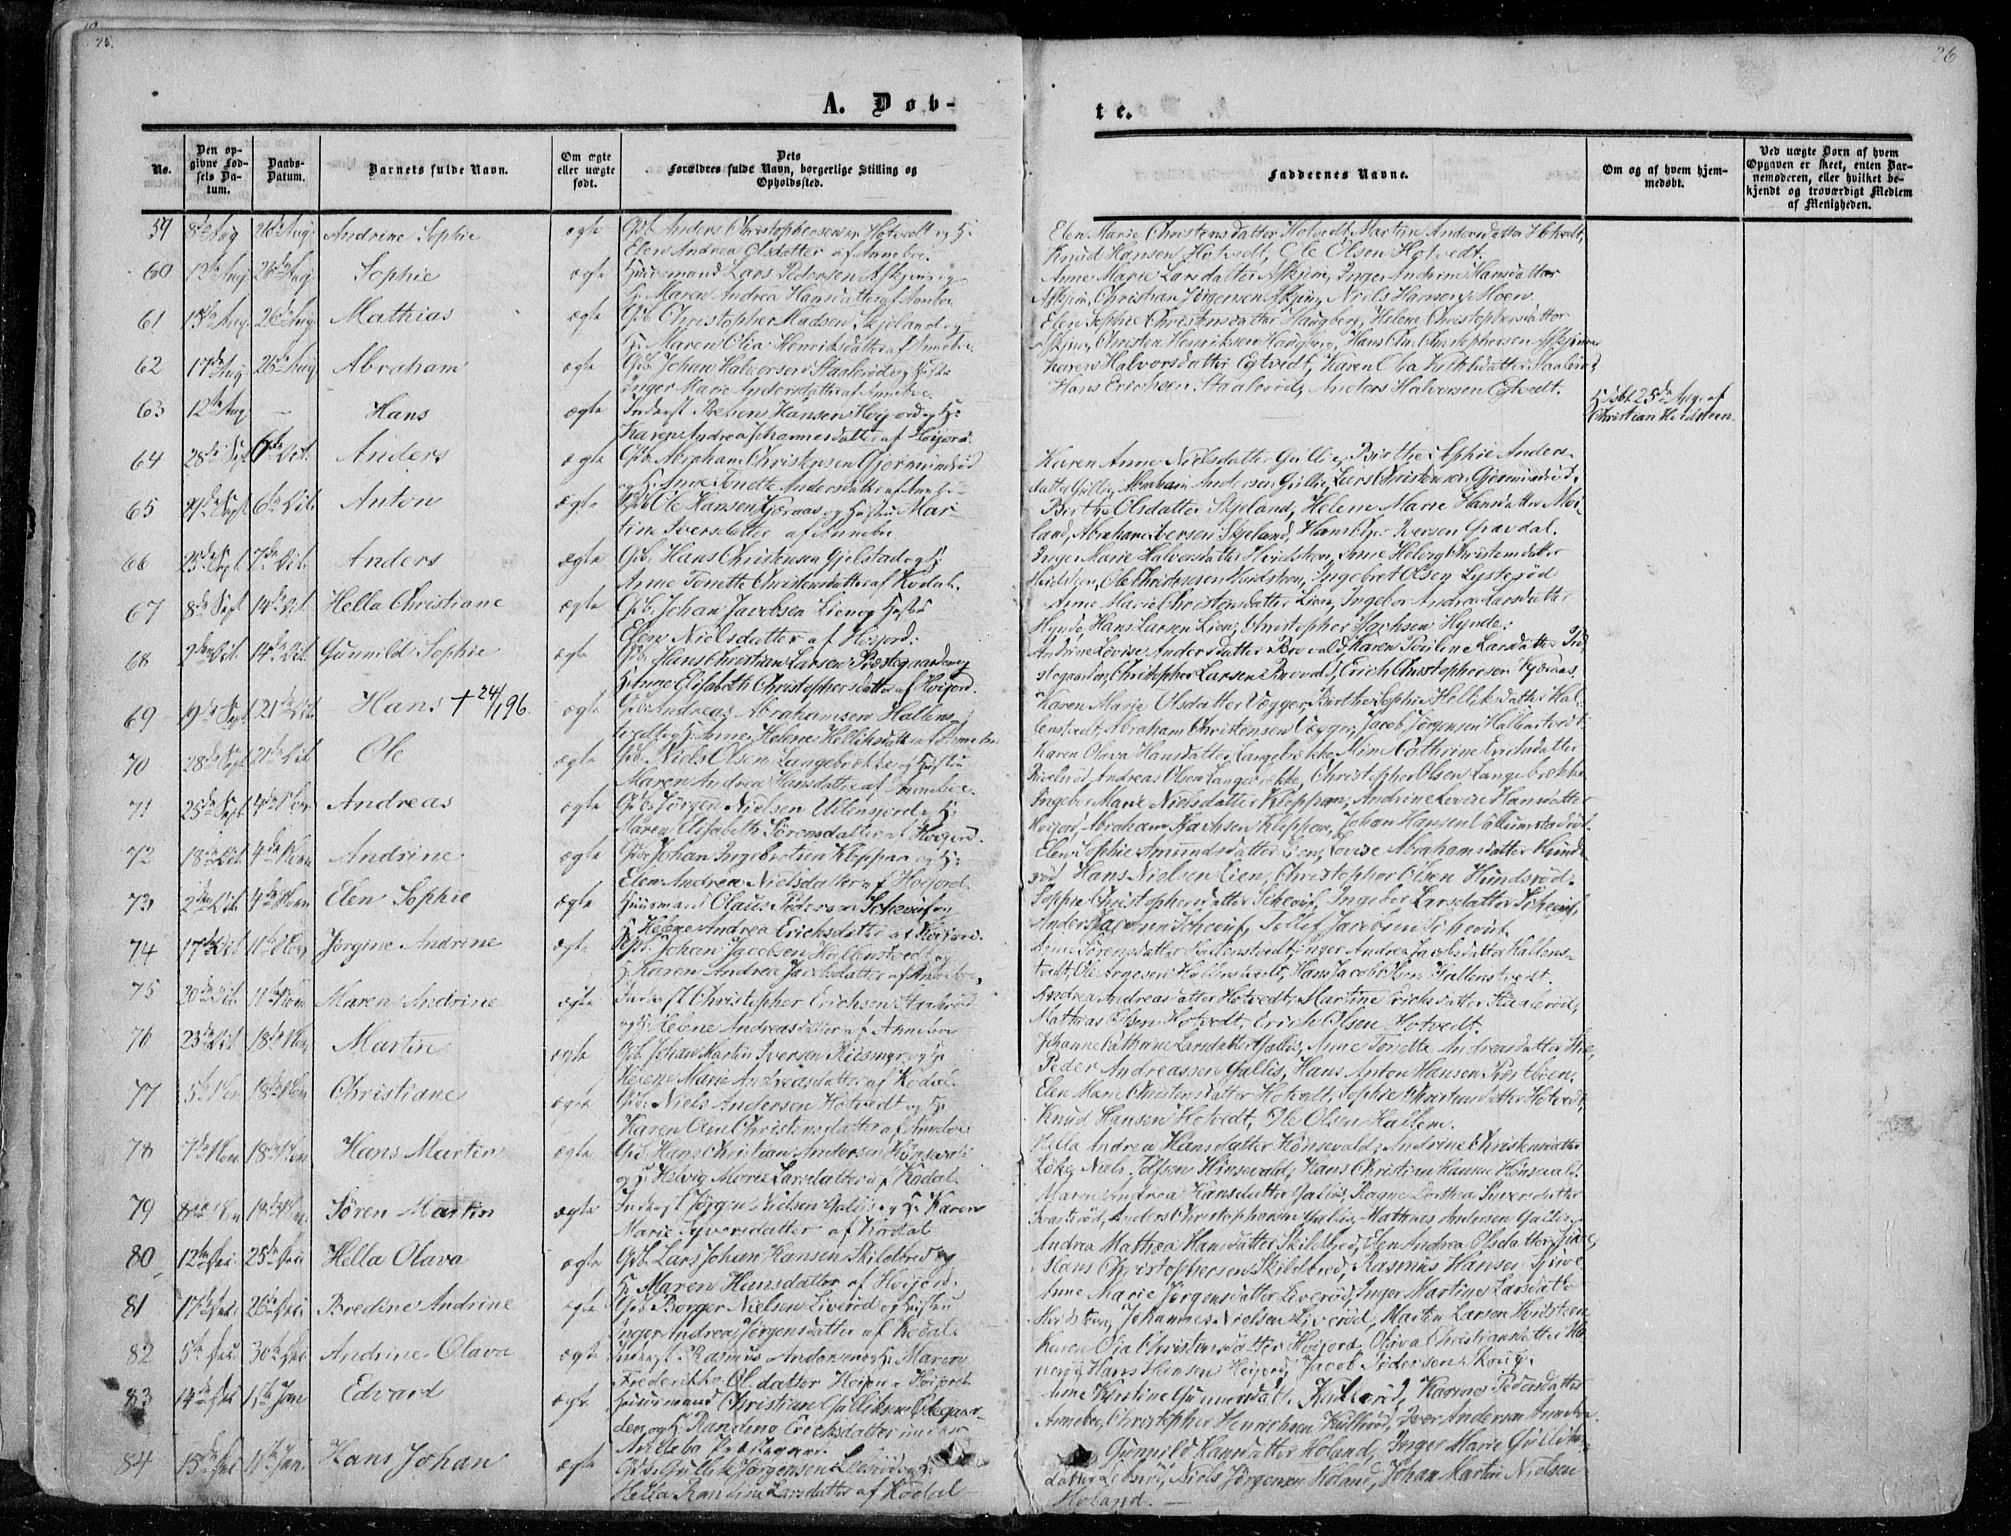 25.
26
A. Døb-
te.
No.
Den op-
givne Fød-
sels Da-
tum.
Daabs-
Datum.
Barnets fulde Navn.
Om ægte
eller uægte
født.
Dets
Forældres fulde Navn, borgerlige Stilling og
Opholdssted.
Faddernes Navne.
Om og af hvem hjem-
medøbt.
Ved uægte Børn af hvem
Opgaven er skeet, enten Bar-
nemoderen, eller hvilket be-
kjendt og troværdigt Medlem
af Menigheden.
59 8de Aug 26de Aug. Andrine Sophie ægte Gb. Anders Christophersen Hotvedt og H:
Elen Andrea Olsdatter af Annebo.
Elen Marie Christensdatter Hotvedt, Martin Andersdatter Hotvedt,
Knud Hansen Hotvedt, Ole Olsen Hotvedt.
60 12te Aug 26de Aug Sophie ægte Huusmand Lars Pedersen Askjem og
H. Maren Andrea Hansdatter af Annebo
Anne Marie Larsdatter Askjem, Inger Andrine Hansdatter
Askjem, Christian Jørgensen Askjem, Niels Hansen Moen.
61 26de Aug. Mathias ægte Gb. Christopher Madsen Skjeland og
H. Maren Olia Henriksdatter af Annebo.
Elen Sophie Christensdatter Haugberg, Helene Christophersdatter
Askjem, Christen Henriksen Haugberg, Hans Chr. Christophersen Askjem
62 17de Aug 26de Aug Abraham ægte Gb. Johan Halvorsen Staalerød og Hustru
Inger Marie Andersdatter af Annebo.
Karen Halvorsdatter Egtvedt, Karen Olea Staalerød
Hans Erichsen Staalerød, Anders Halvorsen Egtvedt.
63 12te Aug — Hans ægte Inderst Preben Hansen Høijord og H:
Karen Andrea Johannesdatter af Høijord.
25de Aug. af
Christian Hvidsteen.
64 28de Sept 6te Oct. Anders ægte Gb. Abraham Christensen Gjermundrød
og H. Anne Tonette Andersdatter af Annebo
Karen Anne Nielsdatter Gullie, Birthe Sophie Anders-
datter Gullie, Abraham Andersen Gullie, Lars Christensen Gjermundrød.
65 6te Oct. Anton ægte Gb. Ole Hansen Kjæraas og Hustru Mar-
tine Iversdatter af Annebo
Birthe Olsdatter Skjeland, Helene Marie Hansdatter Moi-
land, Abraham Iversen Skjeland, Hans Chr. Iversen Gravdal.
66 25de Sept 7de Oct. Anders ægte Gb. Hans Christensen Gjelstad og H:
Anne Tonette Christensdatter af Kodal.
Inger Marie Halvorsdatter Hvidsteen, Anne Helvig Christensdatter
Hvidsteen, Ole Christensen Hvidsteen, Ingebret Olsen Lysterød
67 8de Sept 14de Oct. Hella Christiane ægte Gb. Johan Jacobsen Lien og Hustru
Elen Nielsdatter af Høijord.
Anne Marie Christensdatter Lien, Ingebor Andrea Larsdatter
Hynde, Hans Larsen Lien, Christopher Isachsen Hynde.
68 2den Oct. 14de Oct. Gunnild Sophie ægte Gb. Hans Christian Larsen Præstegaarden og
H. Anne Elisabeth Christophersdatter af Høijord.
Andrine Lovise Andersdatter Brevald, Karen Pauline Larsdatter Præ-
stegaarden, Christopher Larsen Brevald, Erich Christophersen Kjæraas
69 19de Sept 21de Oct. Hans + 24/1 96. ægte Gb. Andreas Abrahamsen Hallens-
tvedt og H. Anne Helene Helliksdatter af Annebo
Karen Marie Olsdatter Vegger, Birthe Sophie Helliksdatter Hal-
lenstvedt, Abraham Christensen Vegger, Jacob Jørgensen Hallenstvedt.
70 28de Sept 21de Oct Ole ægte Gb. Niels Olsen Langebrække og Hustru
Maren Andrea Hansdatter af Annebo.
Karen Olava Hansdatter Langebrække, Kathrine Erichsdatter
Andreas Olsen Langebrække, Christopher Olsen Langebrække
71 25de Sept 4de Nov. Andreas ægte Gb. Jørgen Nielsen og H.
Maren Elisabeth Sørensdatter af Høijord.
Ingebor Marie Nielsdatter Kleppan, Andrine Lovise Hansdatter
Høijord, Abraham Isachsen Kleppan, Johan Hansen
72 18de Oct. 4de Nov Andrine ægte Gb. Johan Ingebretsen Kleppan og H:
Elen Andrea Nielsdatter af Høijord.
Elen Sophie Amundsdatter Lien, Lovise Abrahamsdatter Hunds-
rød, Hans Nielsen Lien, Christopher Olsen Hundsrød.
73 2den Oct. 4de Nov Elen Sophie ægte Huusmand Olaus Pedersen Scheuf og
H. Helene Andrea Ericksdatter af Høijord.
Sophie Christophersdatter Scheuf, Ingebor Larsdatter Scheuf,
Anders Scheuf, Tollef Jacobsen Scheuf.
74 17de Oct. 11te Nov. Jørgine Andrine ægte Gb. Johan Jacobsen Hallenstvedt og
H. Karen Andrea Jacobsdatter af Annebo.
Anne Sørensdatter Hallenstvedt, Inger Andrea Jacobsdatter Hallens-
tvedt, Ole Hallenstvedt, Hans Jacob Olsen Hallenstvedt.
75 20de Oct. 11te Nov Maren Andrine ægte Inderst Christopher Erichsen Staalerød
og H. Helene Andreasdatter af Annebo
Andrea Andreasdatter Hotvedt, Martine Erichsdatter Staalerød,
Mathias Olsen Hotvedt, Erich Olsen Hotvedt.
76 23de Oct. 18de Nov Martin ægte Gb. Johan Martin Iversen og H:
Helene Marie Andreasdatter af Kodal.
Johanne Cathrine Larsdatter Gallis, Anne Tonette Andreasdatter
Peder Andreassen Gallis, Hans Anton Hansen
77 5te Nov 18de Nov Christiane ægte Gb. Niels Andersen Hotvedt og H.
Karen Christensdatter af Annebo
Elen Marie Christensdatter Hotvedt, Sophie Christensdatter Hotvedt,
Knud Hansen Hotvedt, Ole Olsen Hallem.
78 7de Nov 18de Nov Hans Martin ægte Gb. Hans Christian Andersen
og H. Helvig Marie Larsdatter af Kodal
Hella Andrea Hansdatter Hønsvald, Andrine Christensdatter
Løke, Niels Hønsvald, Hans Christian Hansen Hønsvald.
79 18de Nov. Søren Martin ægte Inderst Jørgen Nielsen Gallis og H. Karen
Marie Syversdatter af Kodal
Maren Andrea Hansdatter Gallis, Ragne Dorthea Syversdatter
Anders Christophersen Gallis, Mathias Andersen Gallis.
80 12te Dec 25de Dec Hella Olava ægte Gb. Lars Johan Hansen Skildbred og
H. Maren Hansdatter af Høijord.
Andrea Mathea Hansdatter Skildbred, Elen Andrea Olsdatter
Hans Christophersen Skildbred, Rasmus Hansen
81 17de Dec. 26de Dec Bredine Andrine ægte Gb. Borger Nielsen Liverød og Hustru
Inger Andrea Jørgensdatter af Kodal
Anne Marie Jørgensdatter Liverød, Inger Martine Larsdatter
Hvidsteen, Johannes Nielsen Liverød, Martin Larsen Hvidsteen
82 5te Dec 30te Dec. Andrine Olava ægte Inderst Rasmus Andersen og H. Maren
Frederikke Olsdatter Høijord
Karen Olea Christensdatter Høijord, Olava Christiansdatter
Hans Hansen Høijord, Jacob Pedersen Skoug.
83 14de Dec 1ste Jan Edvard ægte Huusmand Christian Gulliksen
og H. Randine Ericksdatter
Annebo
Anne Kirstine Gunnersdatter Kullerød, Karen Pedersdatter
Annebo, Christopher Henrichsen Kullerød, Iver Andersen Annebo.
84 15de Dec 1ste Jan. Hans Johan ægte Gb. Gullik Jørgensen og H:
Hella Randine Larsdatter af Kodal
Gunnild Hansdatter Holand, Inger Marie Gulliks-
datter, Niels Jørgensen Holand, Johan Martin Nielsen
Holand. —